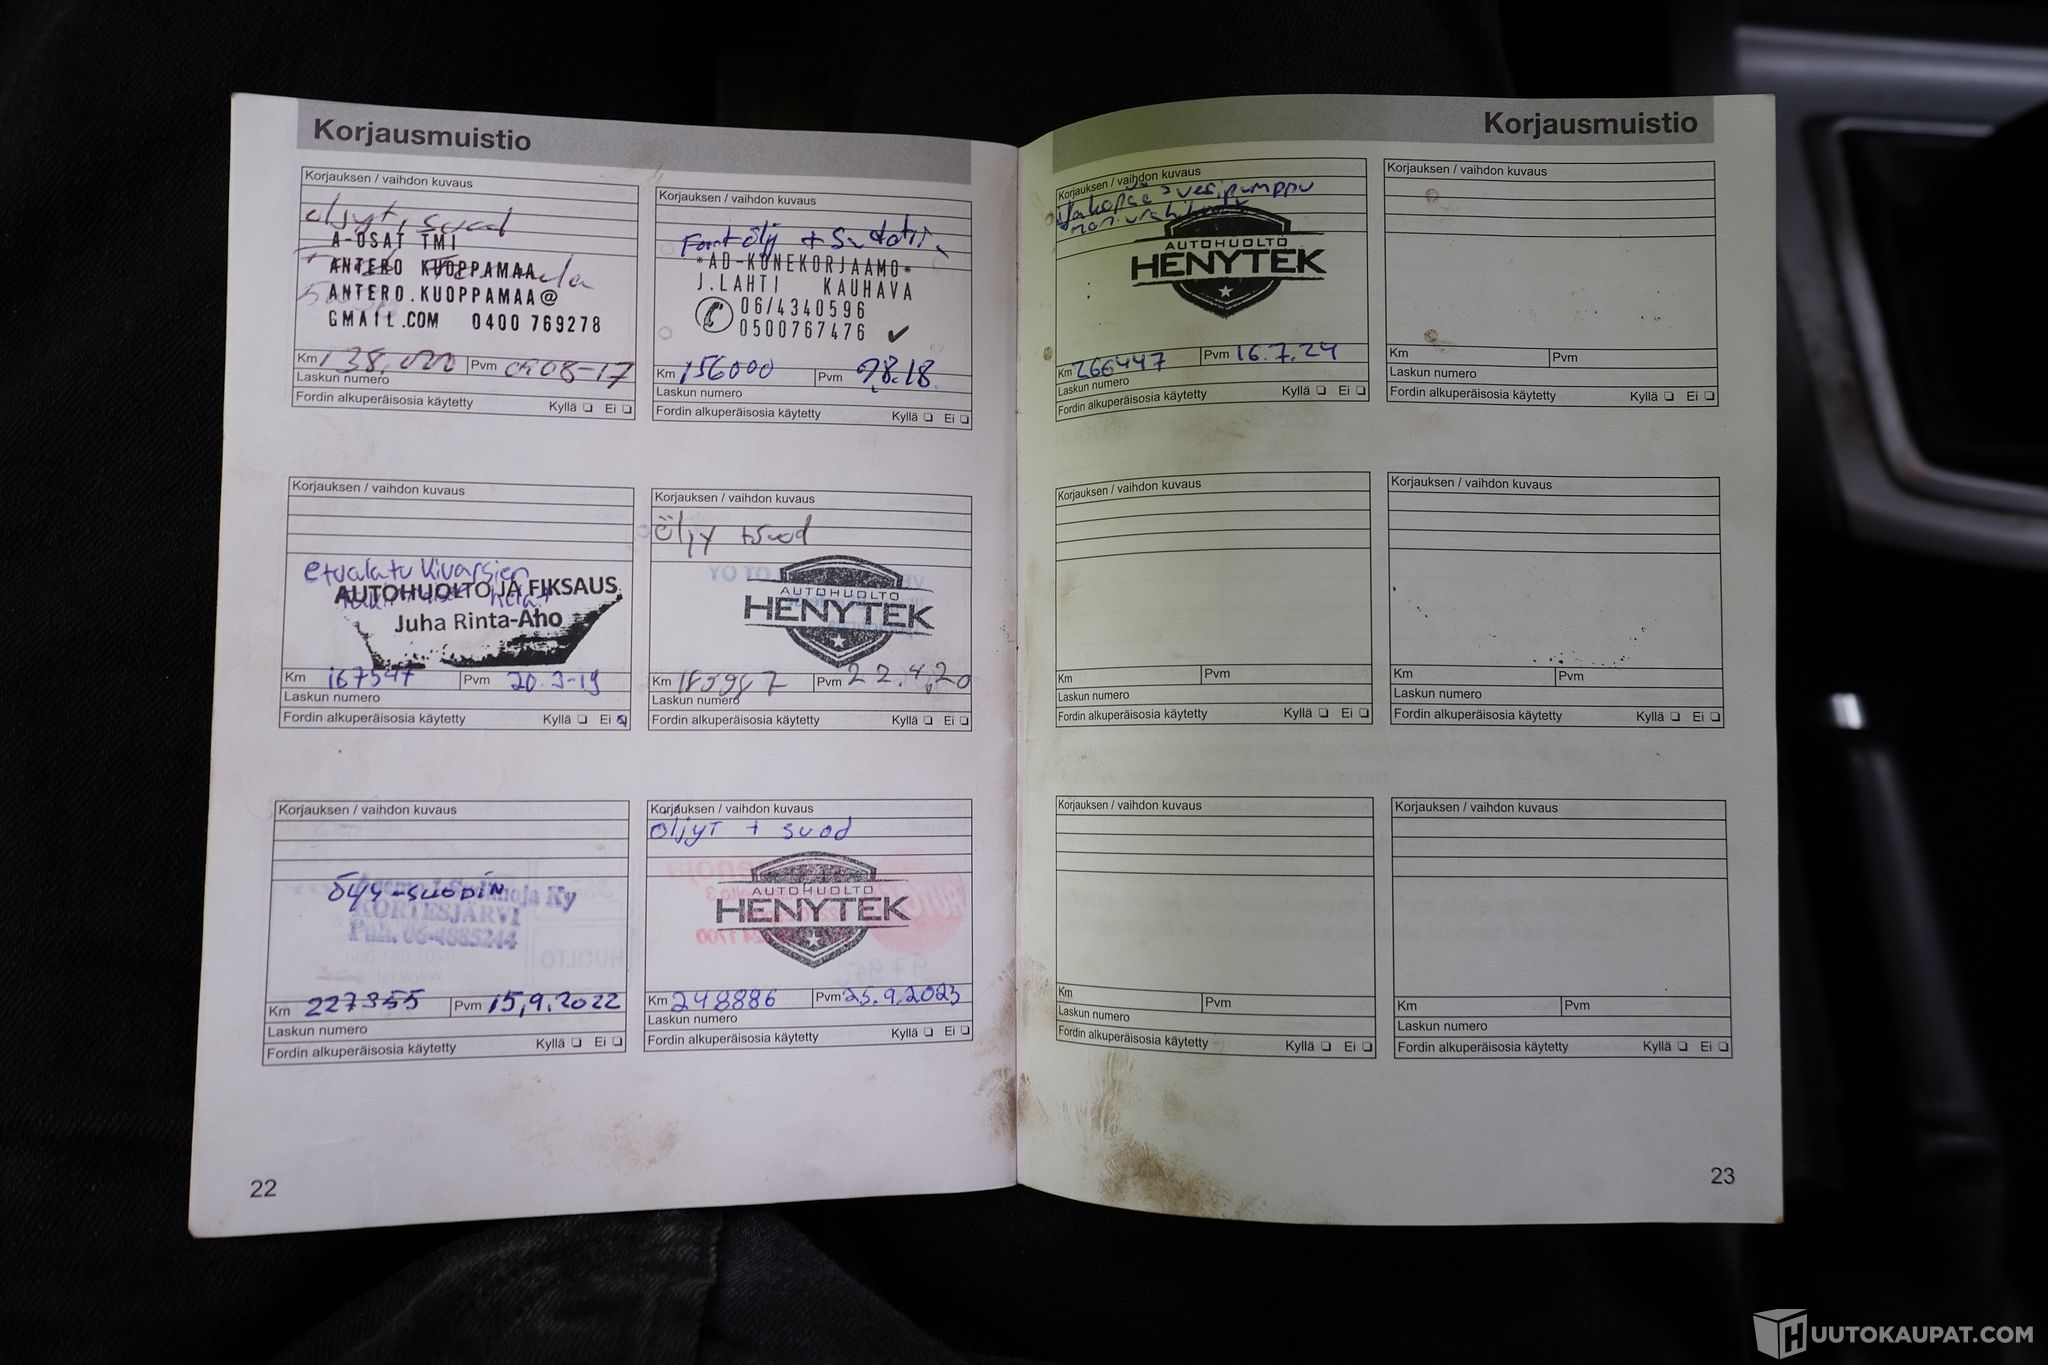 Korjausmuistio
Korjauksen / vaihdon kuvaus
öljyt, suod
A-OSAT TMI
ANTERO KUOPPAMAA
ANTERO.KUOPPAMAA@
GMAIL.COM 0400 769278
Km 138,000 Pvm 08-17
Laskun numero
Fordin alkuperäisosia käytetty Kyllä ❏ Ei ❏
Korjauksen / vaihdon kuvaus
*AD-KONEKORJAAMO*
J.LAHTI KAUHAVA
06/4340596
0500767476
Km 156000 Pvm
Laskun numero
Fordin alkuperäisosia käytetty Kyllä ❏ Ei ❏
Korjauksen / vaihdon kuvaus
etualatukivarsien
AUTOHUOLTO JA FIKSAUS
Juha Rinta-Aho
Km 167547 Pvm 20.3-19
Laskun numero
Fordin alkuperäisosia käytetty Kyllä ❏ Ei ❏
Korjauksen / vaihdon kuvaus
Öljy +suod
AUTOHUOLTO
HENYTEK
Km Pvm 22.4.20
Laskun numero
Fordin alkuperäisosia käytetty Kyllä ❏ Ei ❏
Korjauksen / vaihdon kuvaus
KORTESJÄRVI
Puh. 06-4885244
Km 227355 Pvm 15,9.2022
Laskun numero
Fordin alkuperäisosia käytetty Kyllä ❏ Ei ❏
Korjauksen / vaihdon kuvaus
öljyt + suod
AUTOHUOLTO
HENYTEK
Km 248886 Pvm 25.9.2023
Laskun numero
Fordin alkuperäisosia käytetty Kyllä ❏ Ei ❏
22
Korjausmuistio
Korjauksen / vaihdon kuvaus
Jakopää vesipumppu
AUTOHUOLTO
HENYTEK
Km 266447 Pvm 16.7.24
Laskun numero
Fordin alkuperäisosia käytetty Kyllä ❏ Ei ❏
Korjauksen / vaihdon kuvaus
Km Pvm
Laskun numero
Fordin alkuperäisosia käytetty Kyllä ❏ Ei ❏
Korjauksen / vaihdon kuvaus
Km Pvm
Laskun numero
Fordin alkuperäisosia käytetty Kyllä ❏ Ei ❏
Korjauksen / vaihdon kuvaus
Km Pvm
Laskun numero
Fordin alkuperäisosia käytetty Kyllä ❏ Ei ❏
Korjauksen / vaihdon kuvaus
Km Pvm
Laskun numero
Fordin alkuperäisosia käytetty Kyllä ❏ Ei ❏
Korjauksen / vaihdon kuvaus
Km Pvm
Laskun numero
Fordin alkuperäisosia käytetty Kyllä ❏ Ei ❏
23
HUUTOKAUPAT.COM